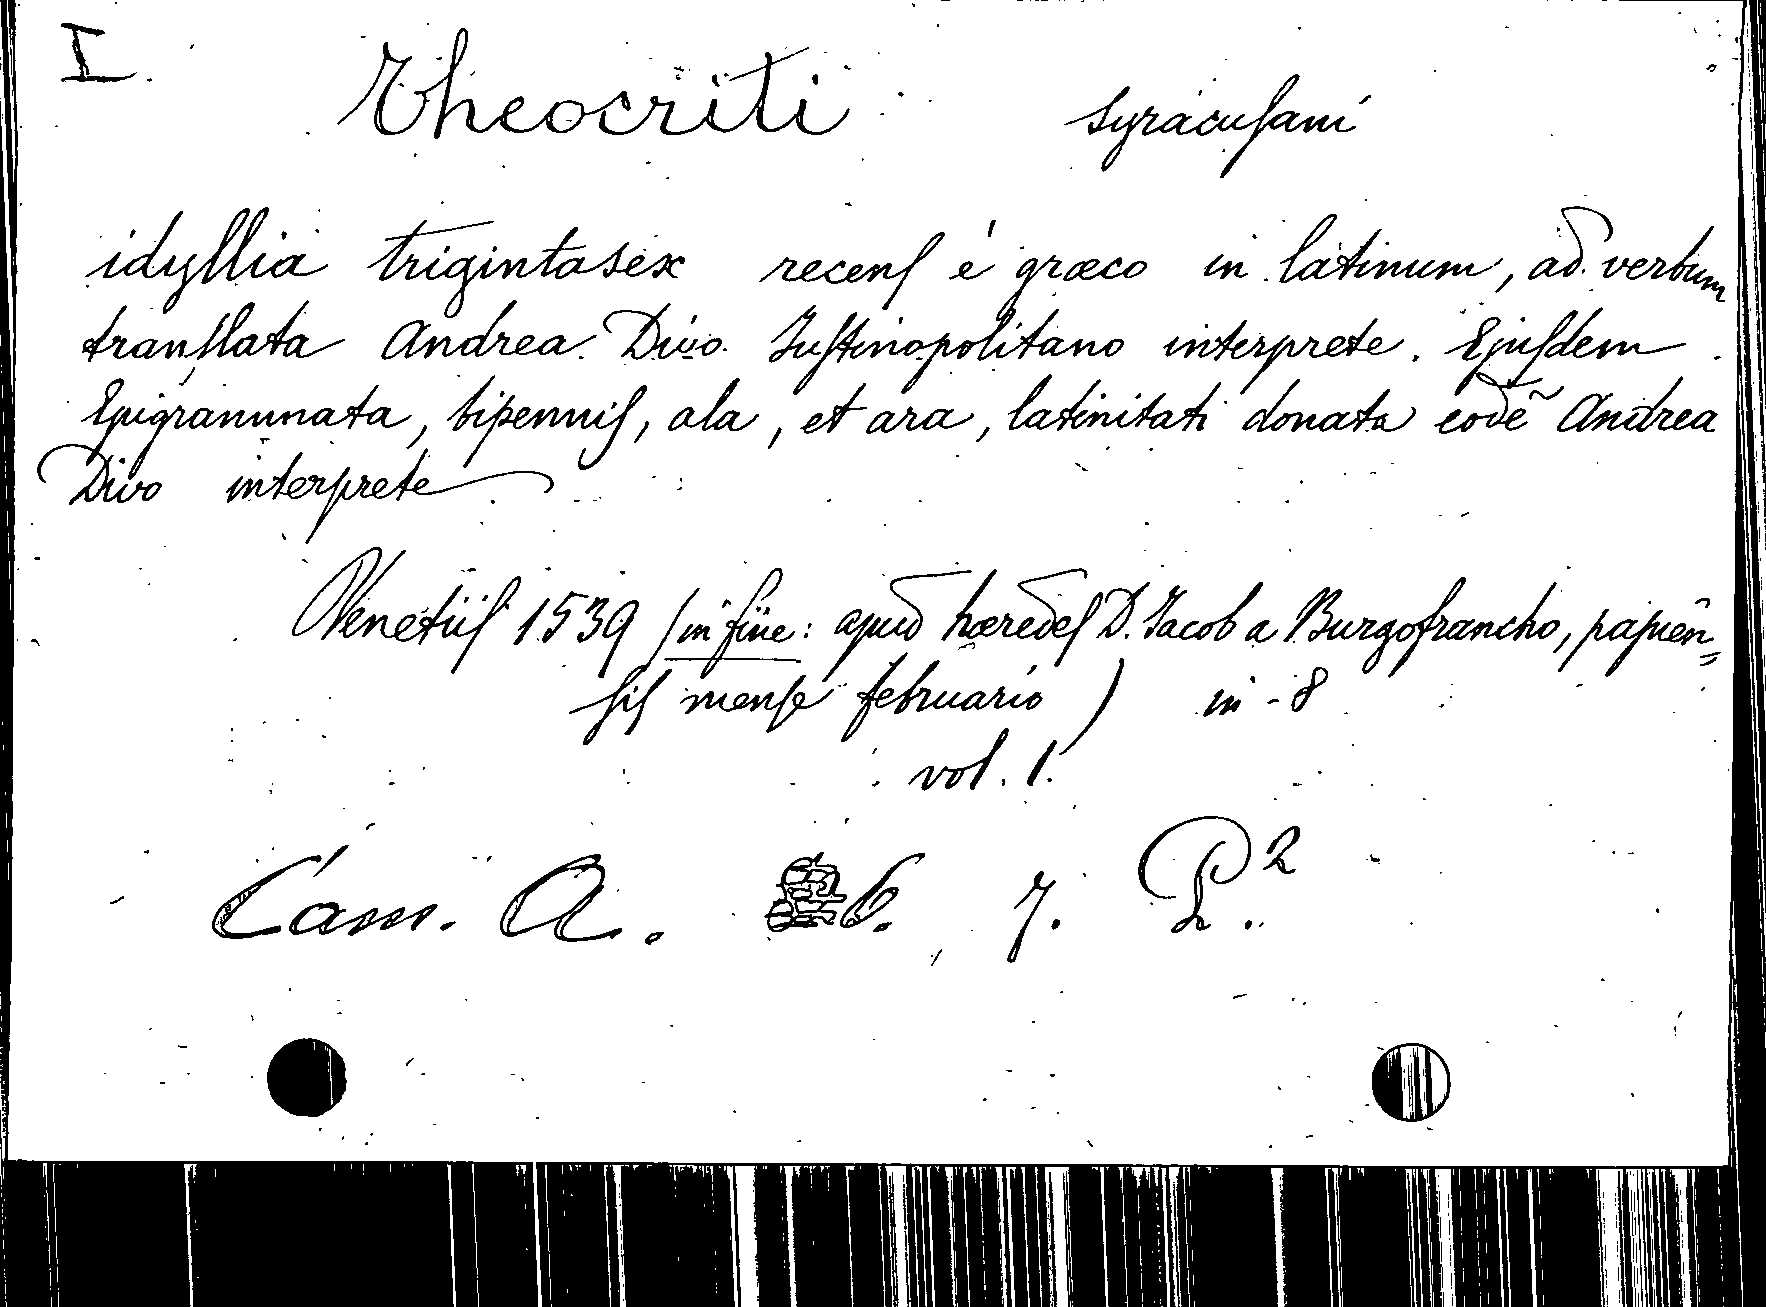 I
Theocriti syracusani
idyllia trigintasex recens é græco in latinum, ad verbum
translata Andrea Divo Justinopolitano interprete. Ejusdem
Epigrammata, bipennis, ala, et ara, latinitati donata eodẽ Andrea
Divo interprete
Venetiis 1539 (in fine: apud hæredes D. Jacob a Burgofrancho, papien=
sis mense februario) in-8
vol. 1.
Cam. A. 6. 7. P².